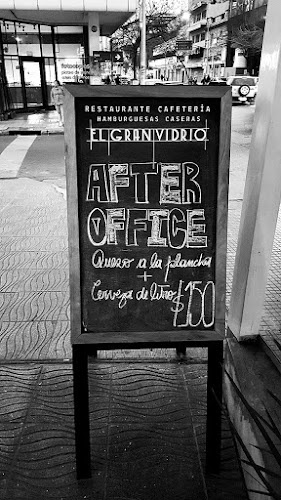 RESTAURANTE CAFETERÍA
HAMBURGUESAS CASERAS
EL GRAN VIDRIO
AFTER
OFFICE
Queso a la plancha
+
Cerveza de litro $150